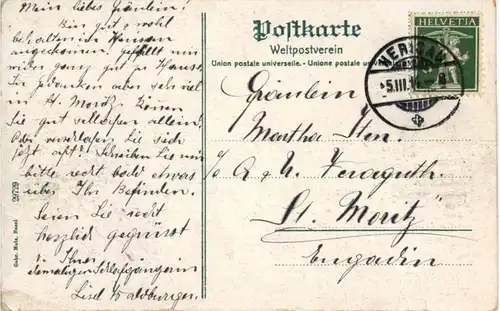 Mein liebes Fräulein!
Bin gut & wohl
behalten in Herisau
angekommen. Gefällt mir
wider ganz gut zu Hause.
In Gedanken aber sehr viel
in St. Moritz. Können
Sie gut schlafen allein,
Oder verschlafen Sie sich
jetzt oft? Schreiben Sie mir
bitte recht bald etwas
über Ihr Befinden.
Seien Sie recht
herzlich gegrüsst
v. Ihrer
ehemaligen Schlafgängerin
Lisel Waldburger.
Postkarte
Weltpostverein
Union postale universelle. - Unione postale
HELVETIA
HERISAU
5.III.
Fräulein
Martha
c/o A & U. Veraguth.
St. Moritz
Engadin
29729
Gebr. Metz, Basel